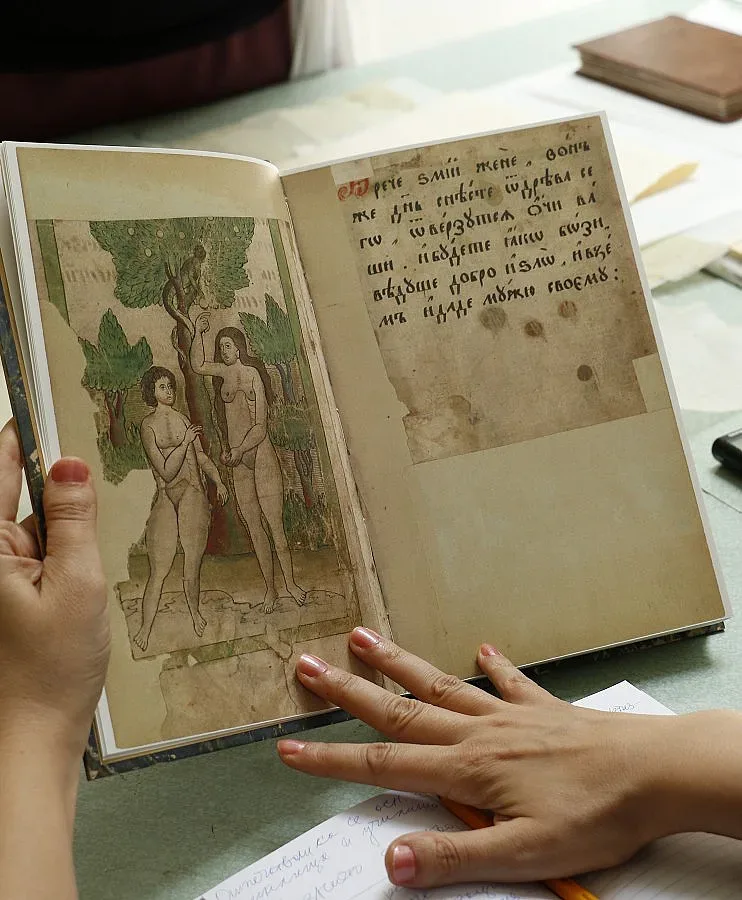 Рече ѕмїй женѐ , вонъ
же дн҃ь снѣсте ѿдрѣва се
гѡ , ѿверзутсѧ ѻчи ва
ши . и҆бу́дете ꙗ҆кѡ бѡзи ,
вѣдуще добро и҆ѕлѡ , и҆взе
мъ и҆даде мужю своему :
се осн
и